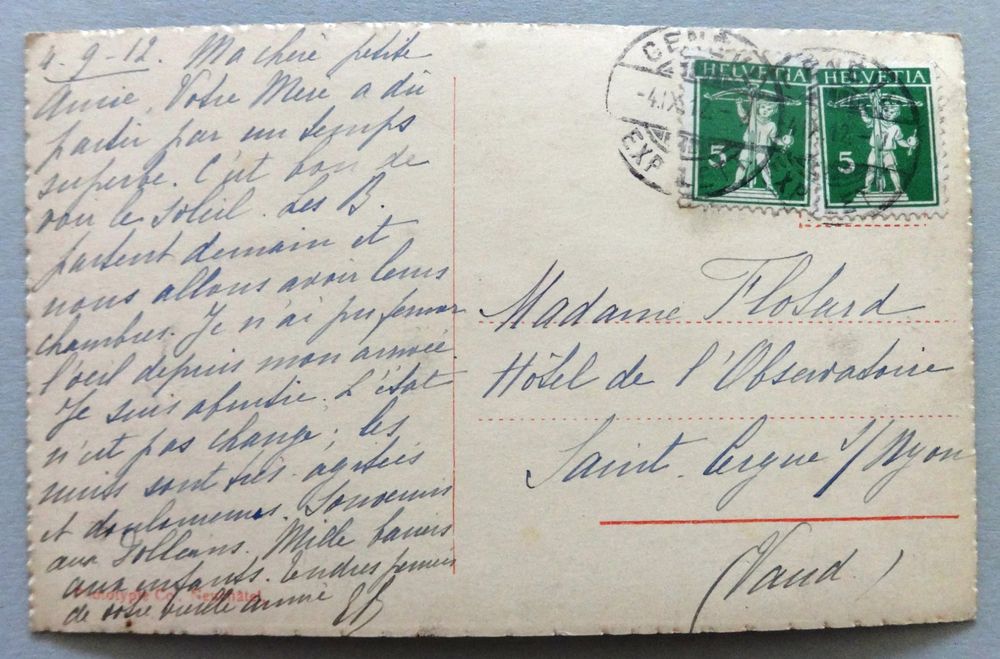 4-9-12. Ma chère petite
Annie, Votre Mère a dû
partir par un temps
superbe. C'est bon de
voir le soleil. Les B.
partent demain et
nous allons avoir leurs
chambres. Je n'ai pu fermer
l'oeil depuis mon arrivée.
Je suis abrutie. L'état
n'est pas changé; les
nuits sont très agitées
et douloureuses. Souvenirs
aux Dollans. Mille baisers
aux enfants. Tendres pensées
de votre vieille amie
Phototypie Co., Neuchâtel
GENÈVE
-4.IX.12
EXP. LETT.
HELVETIA
5
HELVETIA
5
Madame Flosard
Hôtel de l'Observatoire
Saint. Cergue s/Nyon
(Vaud.)